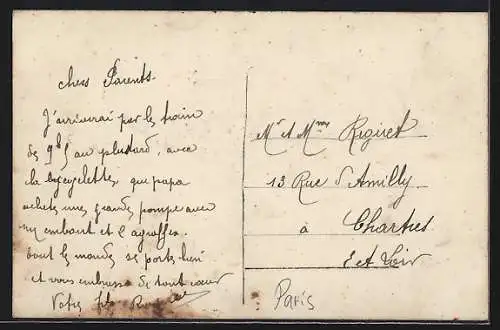 Chers Parents.
J'arriverai par le train
de 9h5 au plutard, avec
la bicyclette, que papa
achete une grande pompe avec
un embout et l'agraffe.
tout le monde se porte bien
et vous embrasse de tout cœur
Votre fils
Mr & Mme Riguet
13 Rue d'Amilly
à Chartres
E et Loir
Paris